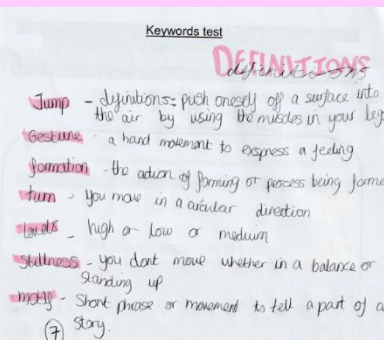 Keywords test
DEFINITIONS
definitions
Jump - definitions = push oneself off a surface into
the air by using the muscles in your legs
Gesture - a hand movement to express a feeling
formation - the action of forming or process being forme
turn - you move in a circular direction
levels - high or low or medium
Stillness - you dont move whether in a balance or
standing up
motif - Short phrase or movement to tell a part of a
7 story.